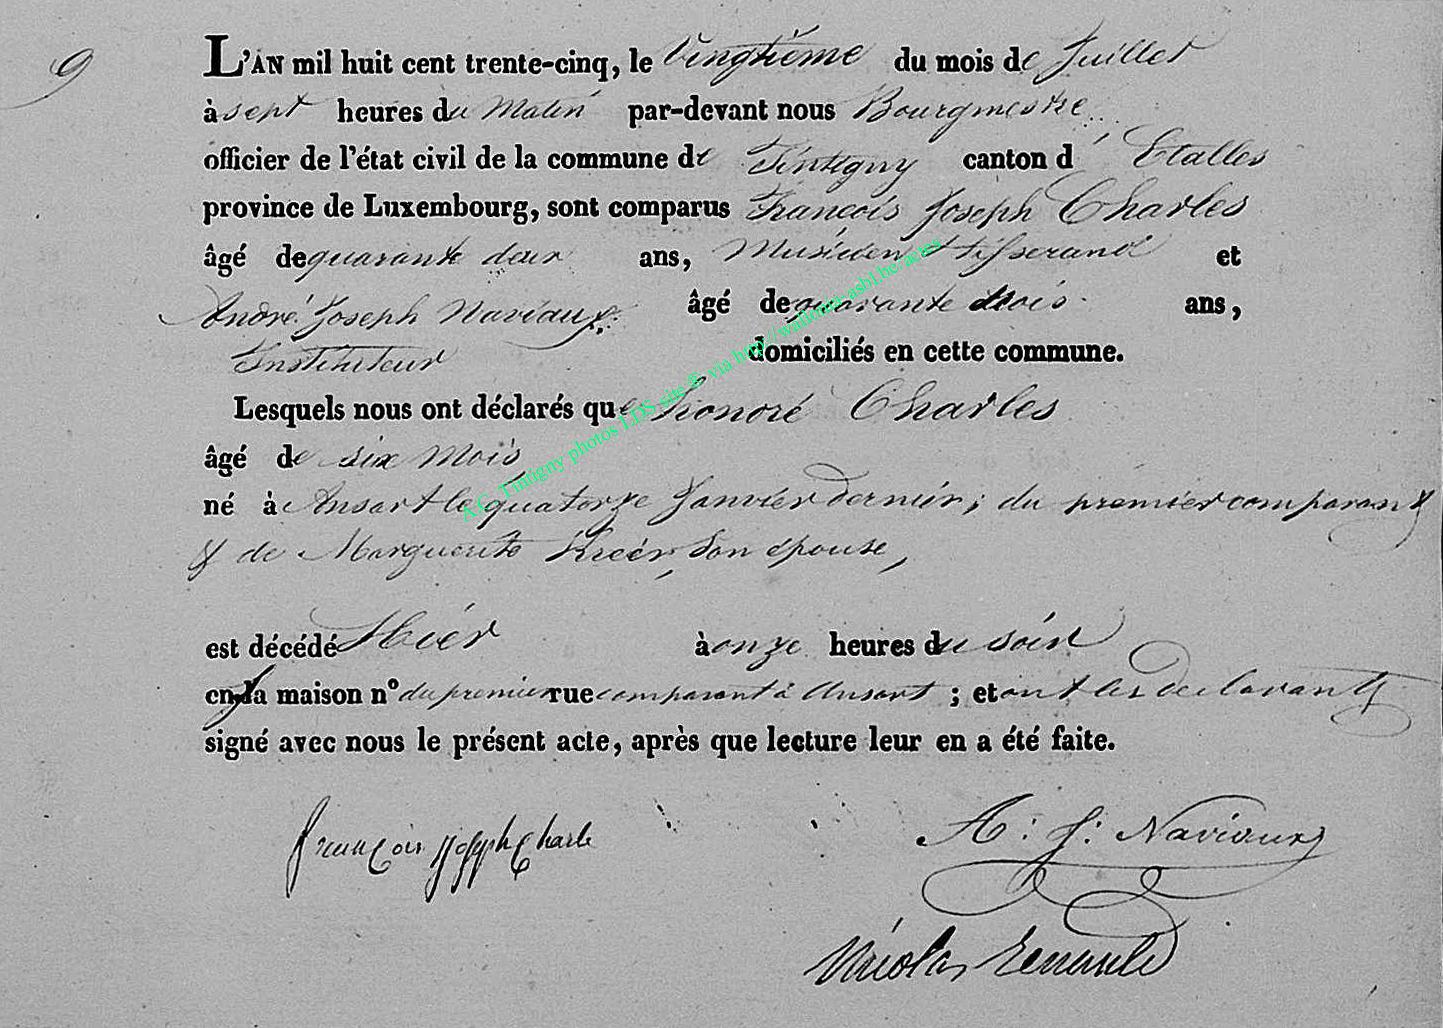 9
L'AN mil huit cent trente-cinq, le Vingtième du mois de Juillet
à sept heures du Matin par-devant nous Bourgmestre
officier de l'état civil de la commune de Tintigny canton d'Etalles
province de Luxembourg, sont comparus François Joseph Charles
âgé de quarante deux ans, Musicien & tisserand et
André Joseph Naviaux, âgé de quarante trois ans,
Instituteur domiciliés en cette commune.
Lesquels nous ont déclarés que honoré Charles
âgé de six mois
né à Ansart le quatorze Janvier dernier; du premier comparant
& de Marguerite son épouse,
est décédé Hier à onze heures du soir
en la maison nº du premier rue comparant à Ansart ; et ont les declarants
signé avec nous le présent acte, après que lecture leur en a été faite.
françois joseph Charle
A: J: Naviaux
Nicolas
A.C. Tintigny photos LDS site © via http://wallonia-asbl.be/actes